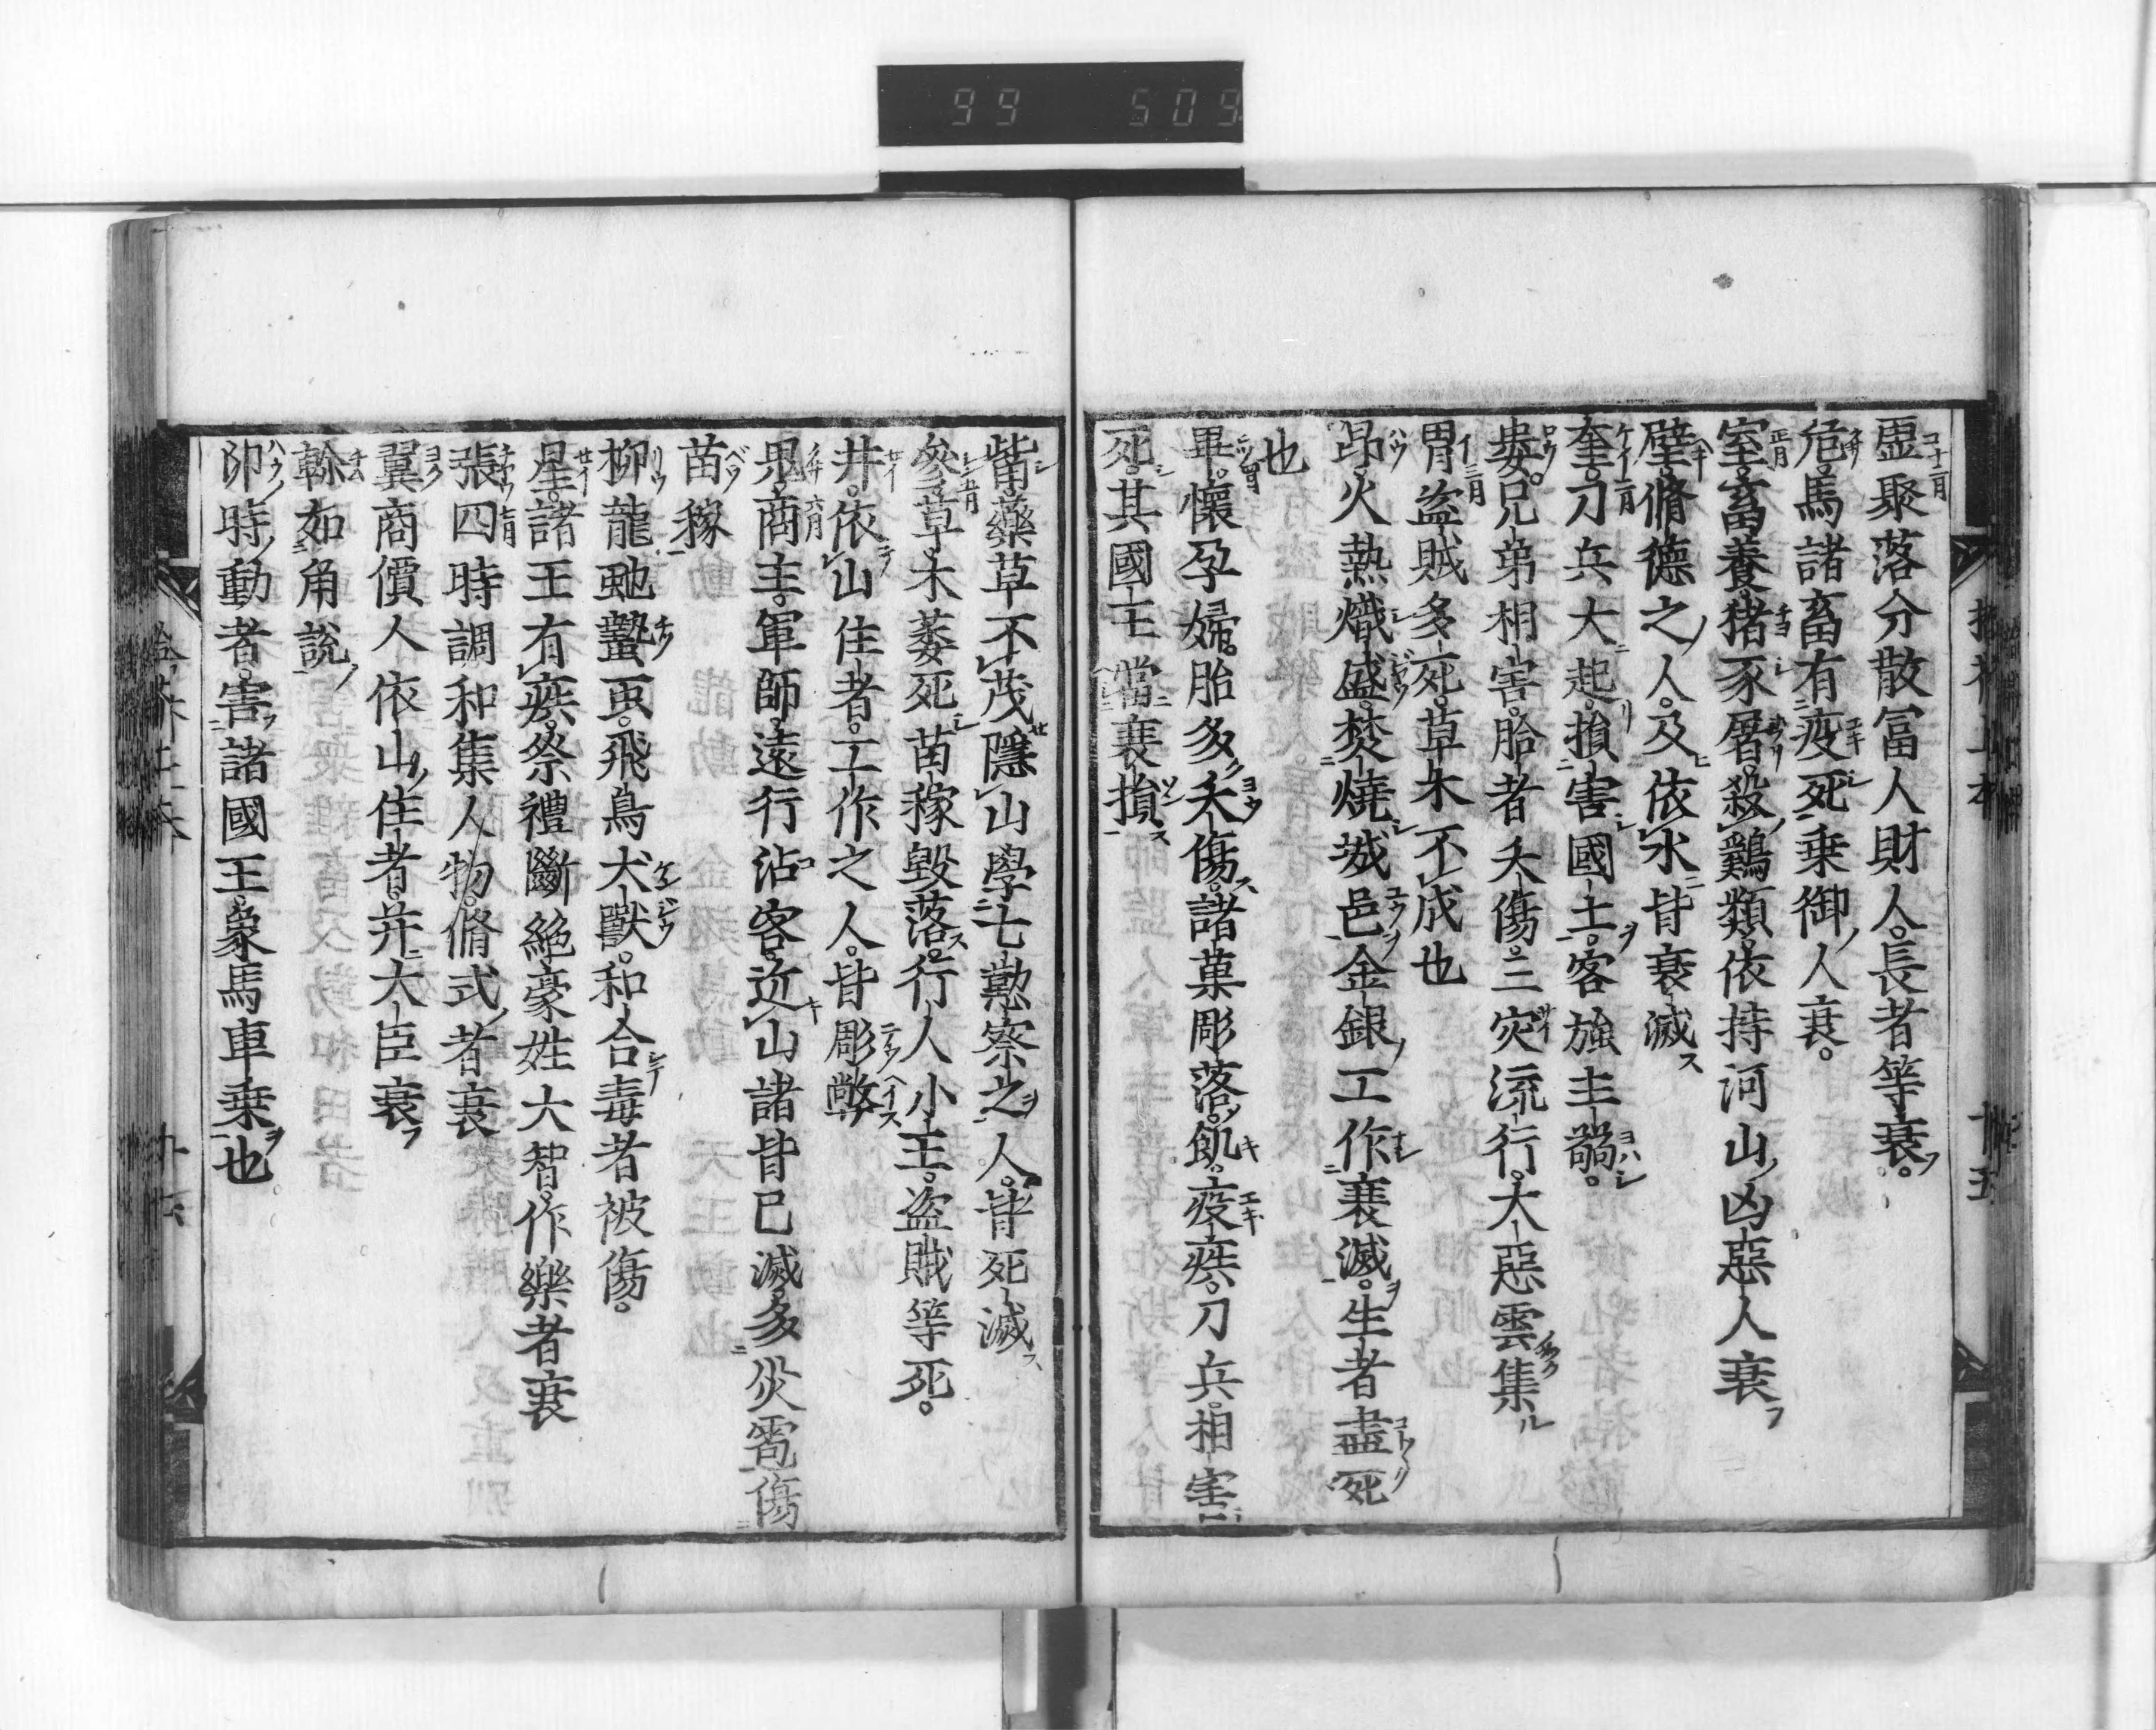 99 509
虛聚落分散冨人財人長者等衰
危馬諸畜有疫死乗御人衰
室畜養猪豕屠殺鷄類依持河山凶惡人衰
壁脩德之人及依水皆衰滅
奎刀兵大起損害國土客強主弱
婁兄弟相害胎者夭傷三灾流行大惡雲集
胃盗賊多死草木不成也
昴火熱熾盛焚燒城邑金銀工作衰滅生者盡死
也
畢懷孕婦胎多夭傷諸菓彫落飢疫疾刀兵相害
死其國王當衰損
觜藥草不茂隱山學七懃察之人皆死滅
參草木萎死苗稼毀落行人小王盗賊等死
井依山住者工作之人皆彫弊
鬼商主軍師遠行沽客近山諸皆巳滅多災雹傷
苗稼
柳龍虵蟄䖝飛鳥犬獸和合毒者被傷
星諸王有疾祭禮斷絶豪姓大智作樂者衰
張四時調和集人物脩式者衰
翼商價人依山住者并大臣衰
軫如角說
卯時動者害諸國王象馬車乗也